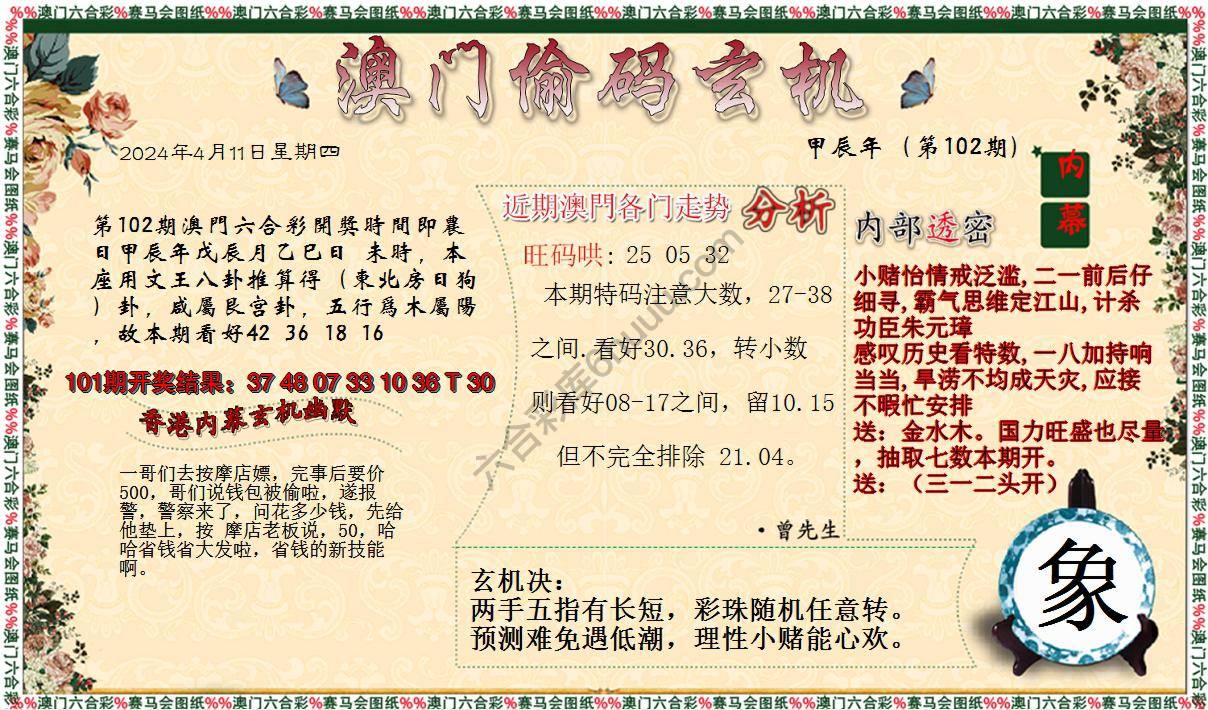 %%澳门六合彩%赛马会图纸%%澳门六合彩%赛马会图纸%%澳门六合彩%赛马会图纸%%澳门六合彩%赛马会图纸%%澳门六合彩%赛马会图纸%%澳门六合彩%赛马会图纸%%
澳门偷码玄机
2024年4月11日星期四
甲辰年（第102期）
内
幕
第102期澳門六合彩開獎時間即農
日甲辰年戊辰月乙巳日 未時，本
座用文王八卦推算得（東北房日狗
）卦，咸屬艮宫卦，五行爲木屬陽
，故本期看好42 36 18 16
101期开奖结果：37 48 07 33 10 36 T 30
香港内幕玄机幽默
一哥们去按摩店嫖，完事后要价
500，哥们说钱包被偷啦，遂报
警，警察来了，问花多少钱，先给
他垫上，按 摩店老板说，50，哈
哈省钱省大发啦，省钱的新技能
啊。
近期澳門各门走势 分析
旺码哄：25 05 32
本期特码注意大数，27-38
之间.看好30.36，转小数
则看好08-17之间，留10.15
但不完全排除 21.04。
·曾先生
内部透密
小赌怡情戒泛滥,二一前后仔
细寻,霸气思维定江山,计杀
功臣朱元璋
感叹历史看特数,一八加持响
当当,旱涝不均成天灾,应接
不暇忙安排
送：金水木。国力旺盛也尽量
，抽取七数本期开。
送：（三一二头开）
玄机决：
两手五指有长短，彩珠随机任意转。
预测难免遇低潮，理性小赌能心欢。
象